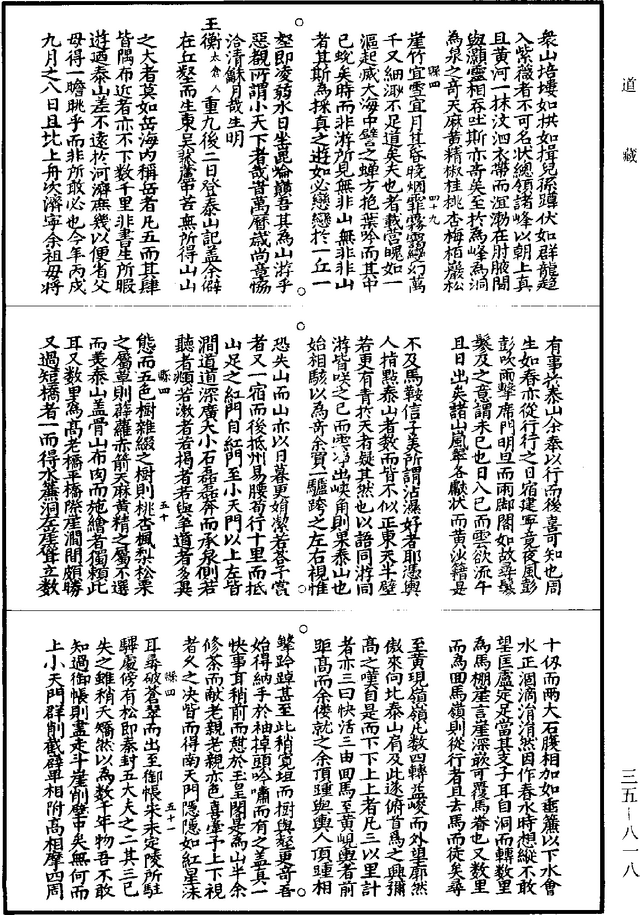 道藏
衆山培塿如拱如揖兒孫蹲伏如群龍超
入紫薇者不可名狀總領諸峰以朝上真
且黄河一抹汶泗衣帶而溟渤在肘腋間
與灝靈相吞吐斯亦奇矣至於為峰為洞
為泉之奇天麻黄精椒桂桃杏梅栢巖松
縣四 四十九
崖竹宜雪宜月其昏曉烟霏霧靄幻萬
千又細渺不足道矣夫也者載營魄如一
漚起滅大海中譬之蟬方抱葉吟而其中
已蛻矣時而非游所見無非山無非非山
者其斯為採真之遊如必戀戀於一丘一
壑即凌弱水日坐崑崙巔吾其為山游乎
惡覩所謂小天下者哉旹萬曆歲尚章惕
洽清龢月哉生明
王衡太倉人 重九後二日登泰山記蓋余僻
在丘壑而生東吳帶苦無所得山山
之大者莫如岳海内稱岳者凡五而其肆
皆隅布近者亦不下數千里非書生所服
遊迺泰山差不遠於河濟庶幾以便省父
母得一瞻眺乎而非所敢必也今年丙戌
九月之八日且北上舟次濟寧余祖母將
有事於泰山余奉以行而後喜可知也周
生如春亦從行行之日宿建寧竟夜風彭
彭吹雨擊席門明旦而雨脚闊如故尋鬃
鬃及之竟謂未已也日入已而雲欲流午
且日出矣諸山嵐翠各獻狀而黄沙籍是
不及馬鞍信子美所謂沾濕好者耶憑輿
人指點泰山者數而皆不似正東天半壁
若更有青於天者疑其然也以語同游同
游皆咲之已而雲出峽角則果泰山也
始相駭以為奇余質一驢跨之左右視惟
恐失山而山亦以日暮更娟潔若荅予賞
者又一宿而後抵州易腰筍行十里而抵
山足之紅門自紅門至小天門以上左皆
澗道道深廣大小石磊磊奔而承泉側若
聽者頫若漱者若揭者若與争道者多異
縣四 五十
態而五色樹雜綴之樹則桃杏楓梨松栗
之屬草則薜蘿赤箭天麻黄精之屬不選
而美泰山蓋骨山布肉而施繪者獨賴此
耳又數里為高老橋平橋際崖澗間頗勝
又過短橋者一而得水簾洞岳崖聳立數
十仭而兩大石腹相加如垂簾以下水會
水正涸滴涓涓然因作春水時想縱不敢
望匡廬定足當其支子耳自洞而轉數里
為馬棚崖言崖深嵌可覆馬眷也又數里
而為回馬嶺則從行者且去馬而徒矣尋
至黄峴嶺嶺凡數四轉益峻而外望廓然
傲來向比泰山肩及此遂俯首為之興彌
高之嘆自是而下下上上者凡三以里計
者亦三曰快活三由回馬至黄峴輿者前
距高而余僂就之余頂踵與輿人頂踵相
擊踔甚至此稍寬坦而樹與壑更奇吾
始得納手於袖掉頭吟嘯而有之蓋真一
快事耳稍前而憩於玉皇閣是為山半余
修茶而献老親老親亦色喜臺予上下視
者久之决眥而得南天門隱隱如紅星沬
縣四 五十一
耳尋破蒼翠而出至御帳宋未定陵所駐
驛處傍有松即秦封五大夫之二其三已
失之雖稍夭矯然以為數千年物吾不敢
知過御帳則盡走斗崖削壁中矣無何而
上小天門群削截辟平相附高相摩四周
三五—八一八